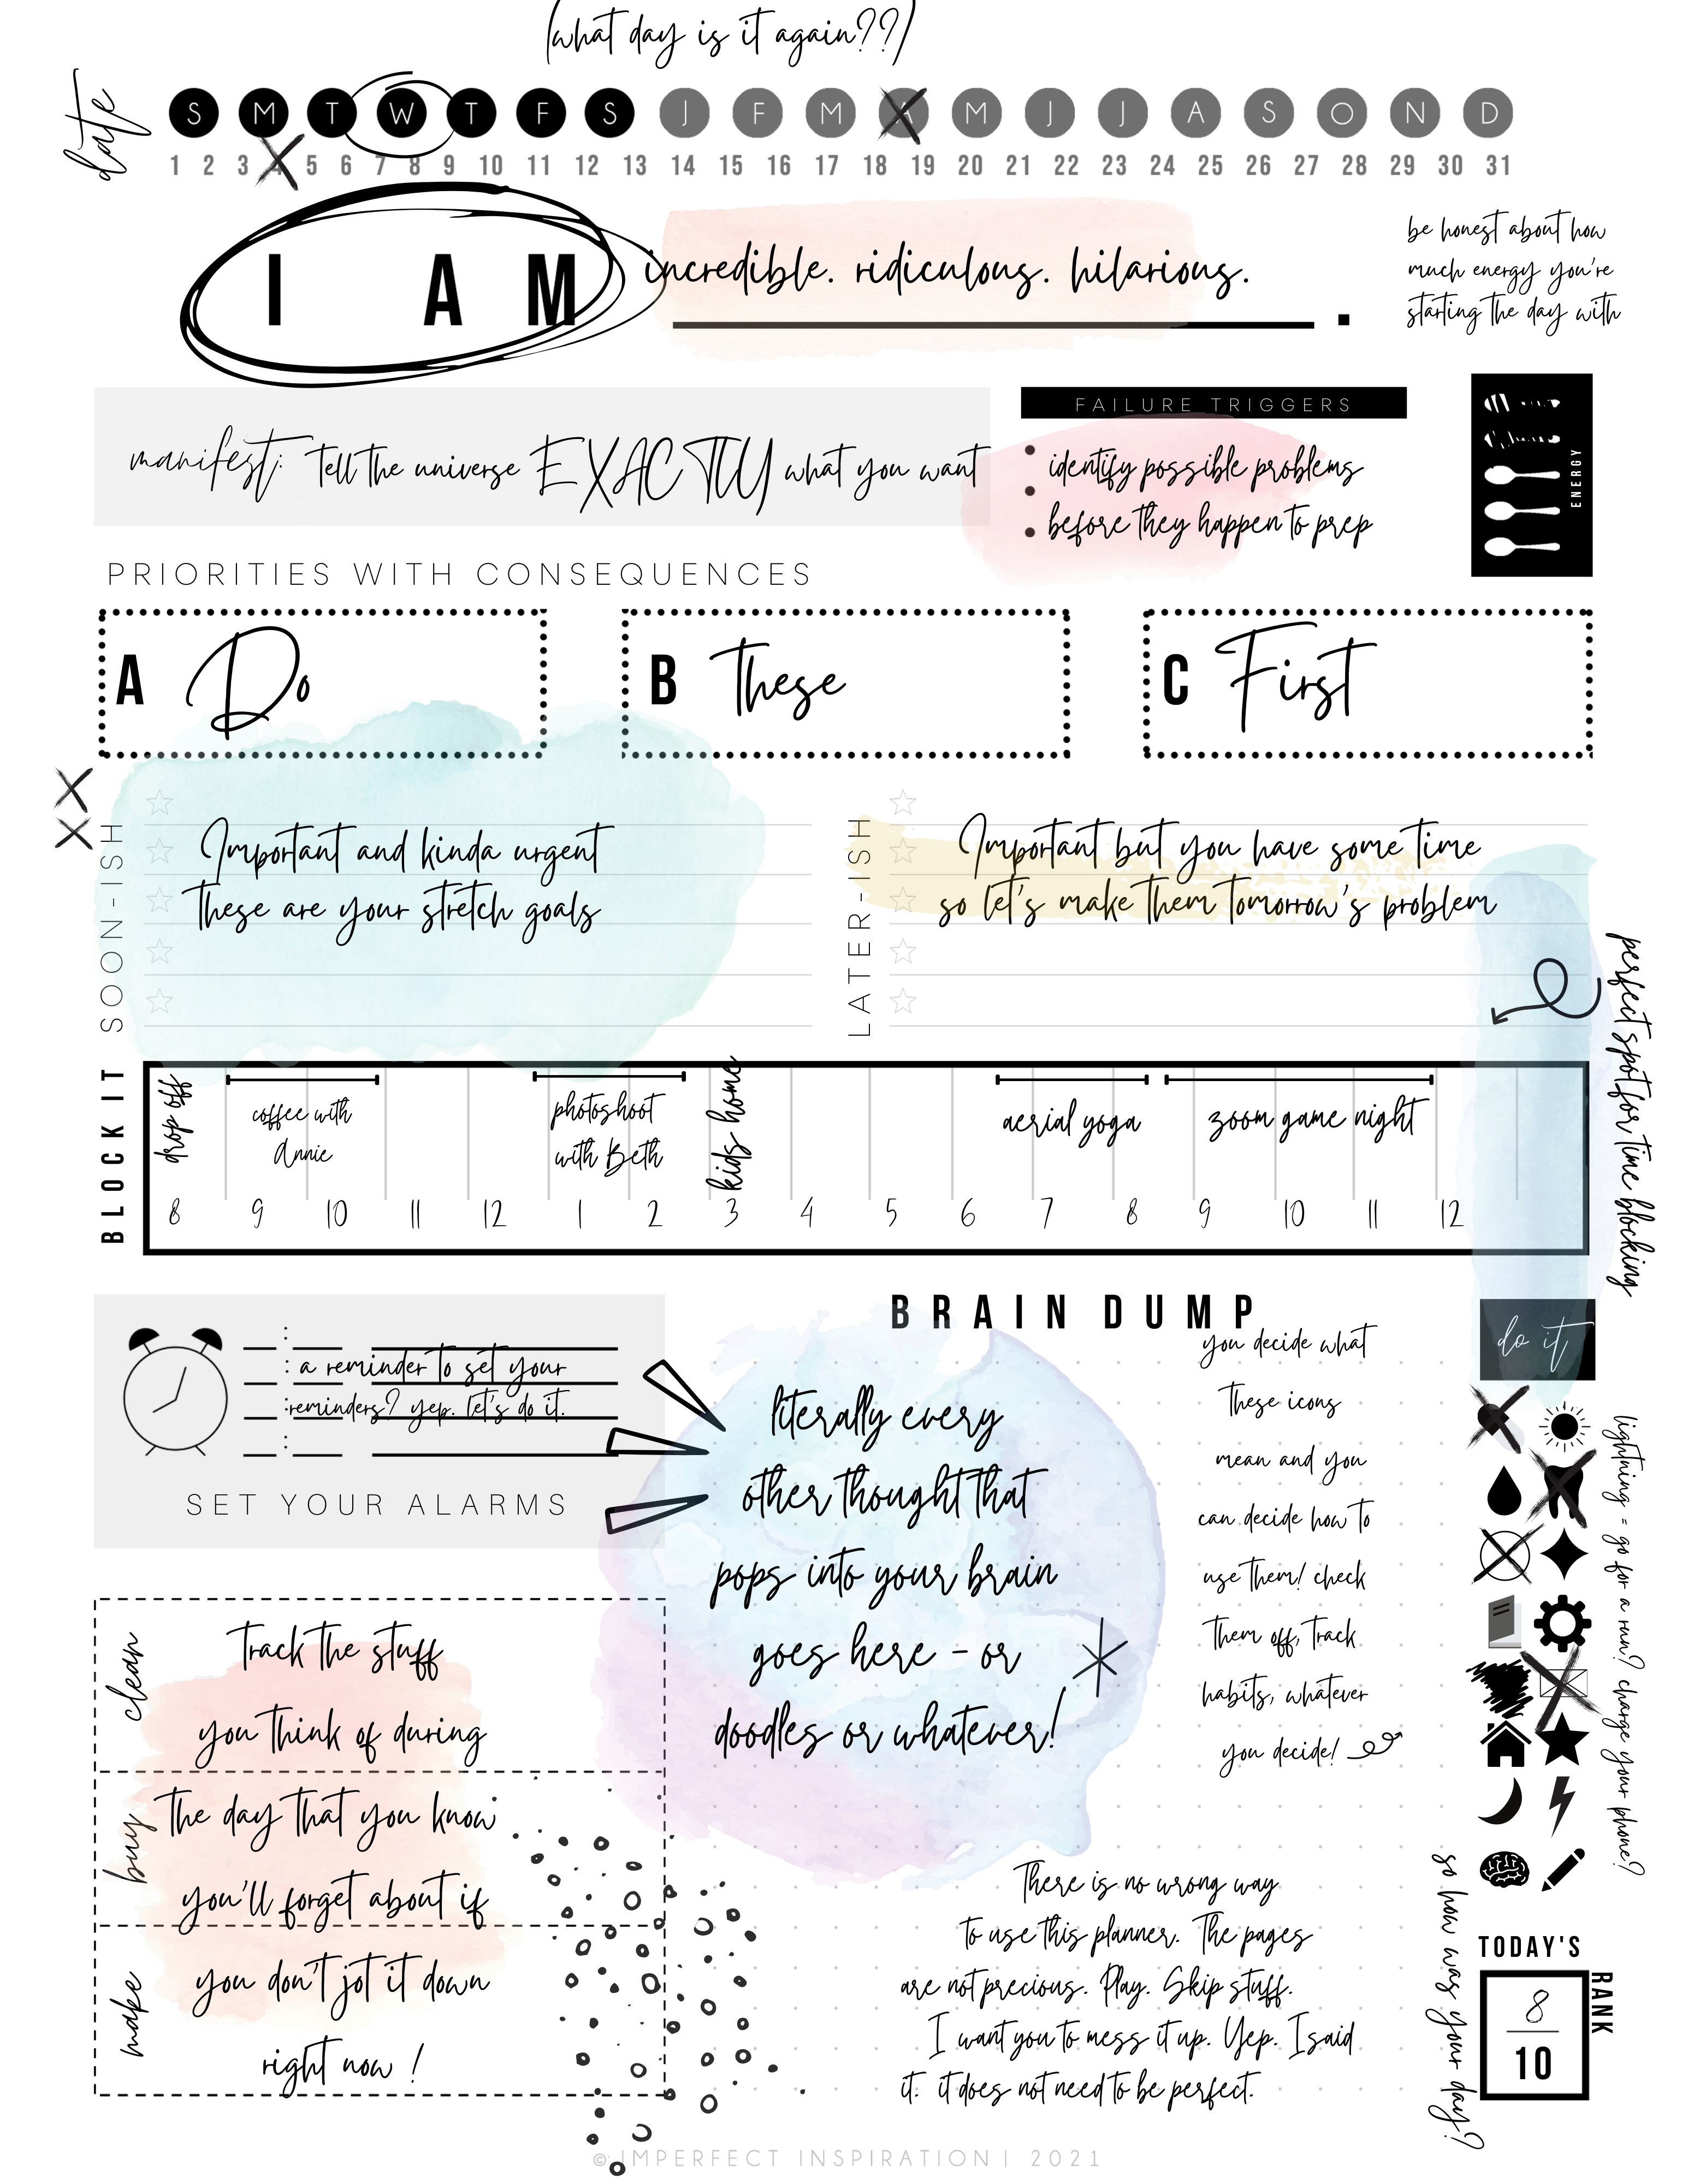 (what day is it again??)
date
S M T W T F S J F M A M J J A S O N D
1 2 3 4 5 6 7 8 9 10 11 12 13 14 15 16 17 18 19 20 21 22 23 24 25 26 27 28 29 30 31
I AM incredible. ridiculous. hilarious. .
be honest about how
much energy you're
starting the day with
manifest: Tell the universe EXACTLY what you want
FAILURE TRIGGERS
• identify possible problems
•
• before they happen to prep
ENERGY
PRIORITIES WITH CONSEQUENCES
A Do
B These
C First
SOON-ISH
Important and kinda urgent
These are your stretch goals
LATER-ISH
Important but you have some time
so let's make them tomorrow's problem
perfect spot for time blocking
BLOCK IT
drop off
coffee with
Annie
photoshoot
with Beth
kids home
aerial yoga
zoom game night
8 9 10 11 12 1 2 3 4 5 6 7 8 9 10 11 12
: a reminder to set your
: reminders? yep. let's do it.
SET YOUR ALARMS
BRAIN DUMP
literally every
other thought that
pops into your brain
goes here - or
doodles or whatever!
you decide what
These icons
mean and you
can decide how to
use them! check
Them off, track
habits, whatever
you decide!
do it
lightning = go for a run? charge your phone?
clean
buy
make
Track the stuff
you think of during
the day that you know
you'll forget about if
you don't jot it down
right now !
There is no wrong way
to use this planner. The pages
are not precious. Play. Skip stuff.
I want you to mess it up. Yep. I said
it. it does not need to be perfect.
so how was your day?
TODAY'S
RANK
8
10
© IMPERFECT INSPIRATION | 2021